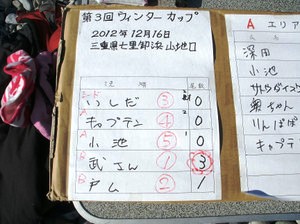 第3回ウィンターカップ
2012年12月16日
三重県七里御浜山地口
流順 尾数
いしだ ③ 0
キャプテン ④ 0
小池 ⑤ 0
武さん ① 3
戸ム ② 1
A エリア
深田
小池
りんぱぱ
キャプテ